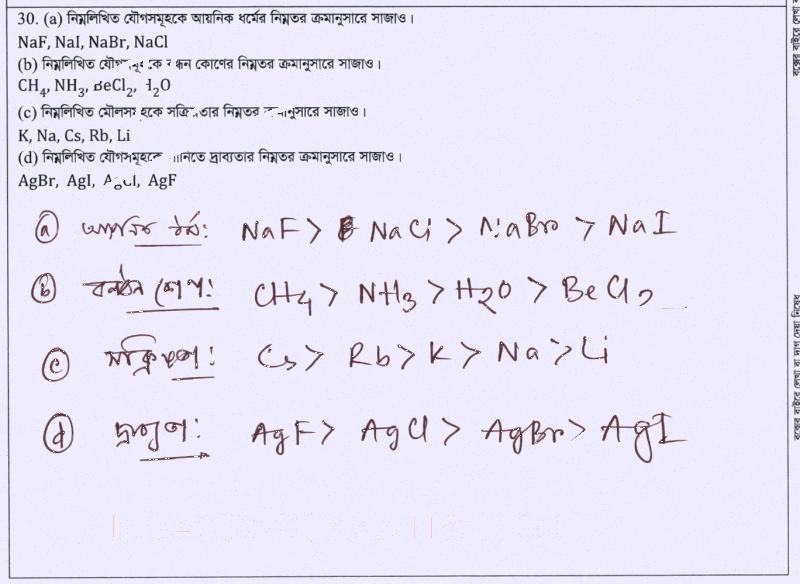 30. (a) নিম্নলিখিত যৌগসমূহকে আয়নিক ধর্মের নিম্নতর ক্রমানুসারে সাজাও।
NaF, NaI, NaBr, NaCl
(b) নিম্নলিখিত কোণের নিম্নতর ক্রমানুসারে সাজাও।
CH₄, NH₃, BeCl₂, H₂O
(c) নিম্নলিখিত সক্রিয়তার নিম্নতর ক্রমানুসারে সাজাও।
K, Na, Cs, Rb, Li
(d) নিম্নলিখিত যৌগসমূহকে পানিতে দ্রাব্যতার নিম্নতর ক্রমানুসারে সাজাও।
AgBr, AgI, AgCl, AgF
ⓐ আয়নিক ধর্ম: NaF > NaCl > NaBr > NaI
ⓑ কোণ: CH₄ > NH₃ > H₂O > BeCl₂
ⓒ সক্রিয়তা: Cs > Rb > K > Na > Li
ⓓ দ্রাব্যতা: AgF > AgCl > AgBr > AgI